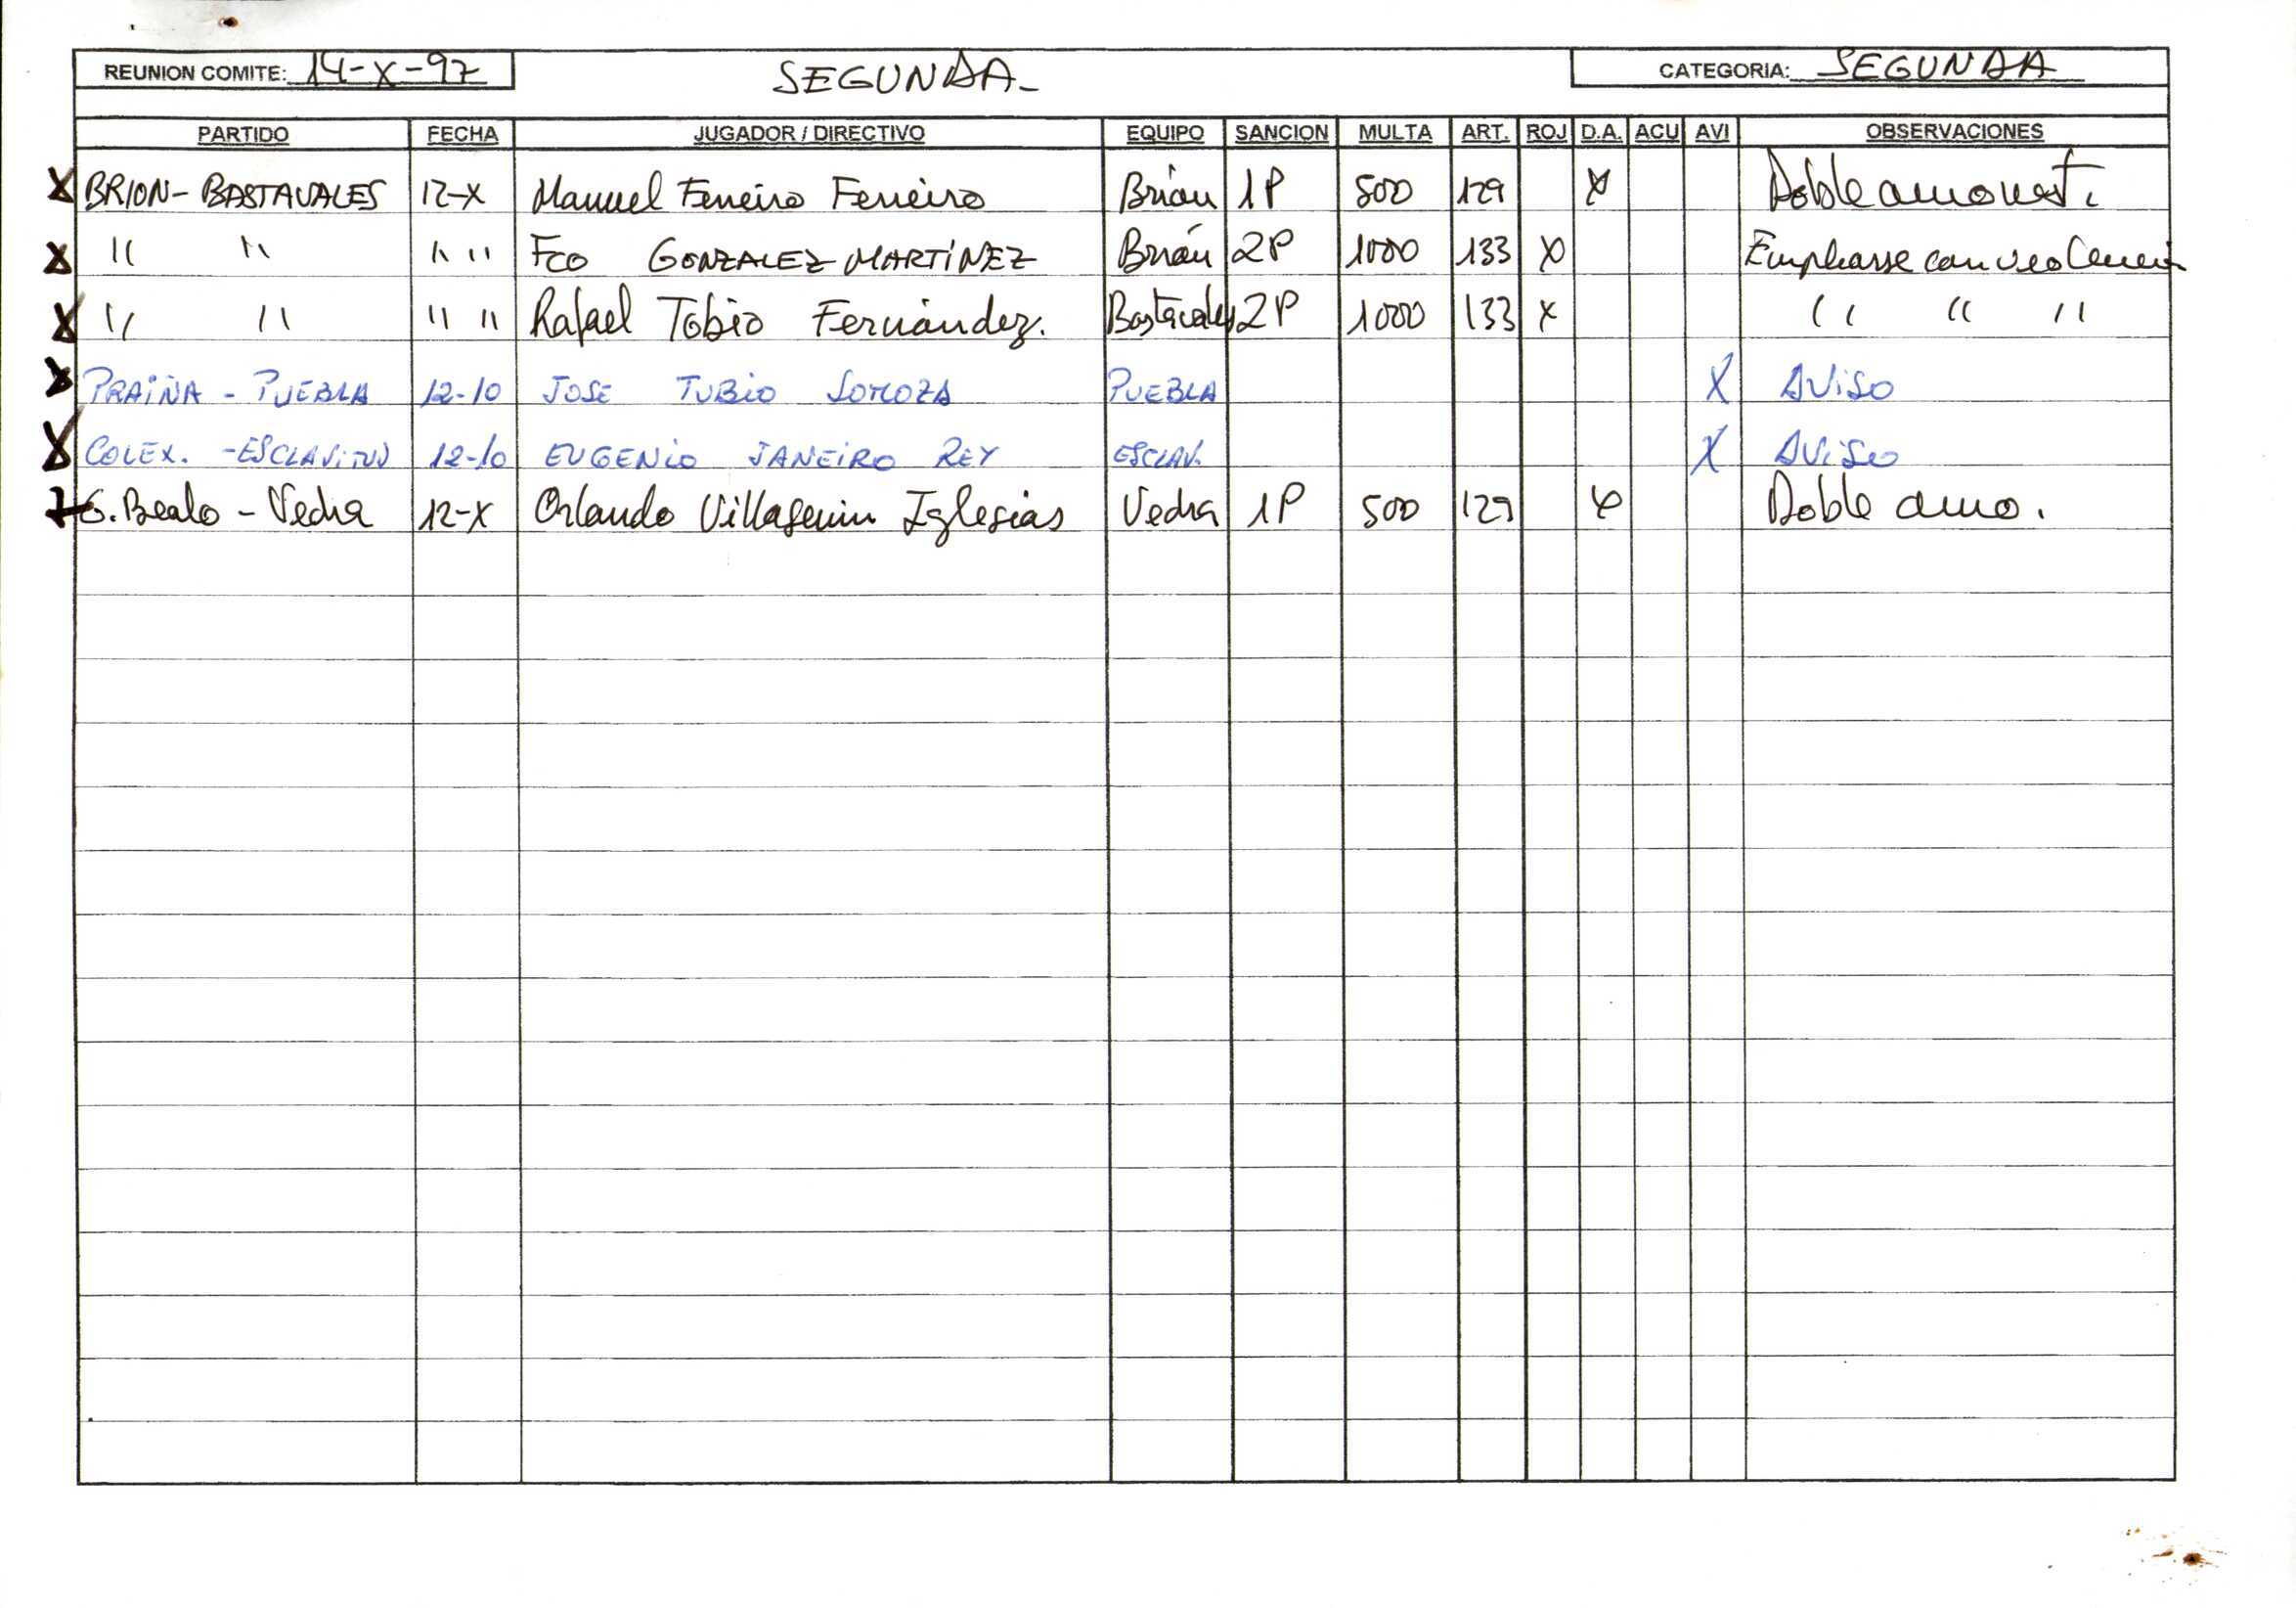 REUNION COMITE: 14-X-97 SEGUNDA- CATEGORIA: SEGUNDA
PARTIDO FECHA JUGADOR / DIRECTIVO EQUIPO SANCION MULTA ART. ROJ D.A. ACU AVI OBSERVACIONES
X BRION- BASTAVALES 12-X Manuel Ferreiro Ferreiro Brión 1P 500 129 X Doble amonest.
X " " " " Fco GONZALEZ MARTÍNEZ Brión 2P 1000 133 X Emplearse con violencia
X " " " " Rafael Tobio Fernández. Bastavales 2P 1000 133 X " " "
X PRAIÑA - PUEBLA 12-10 JOSE TUBIO SOMOZA PUEBLA X AVISO
X COLEX. -ESCLAVITUD 12-10 EUGENIO JANEIRO REY ESCLAV. X AVISO
X S. Bealo - Vedra 12-X Orlando Iglesias Vedra 1P 500 129 X Doble amo.